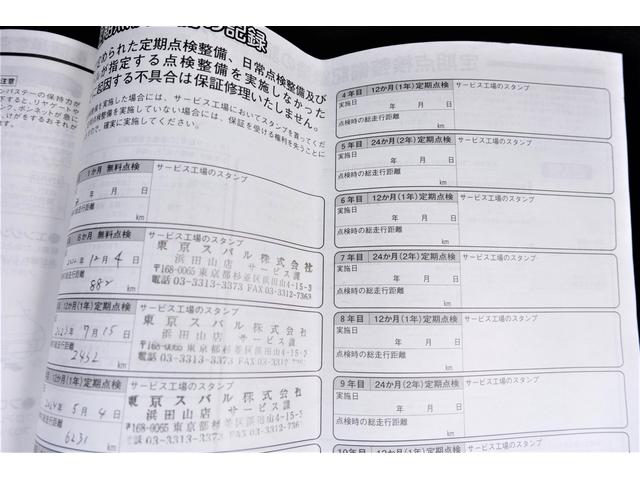 注意
記録
められた定期点検整備、日常点検整備及び
が指定する点検整備を実施しなかった
起因する不具合は保証修理いたしません。
備を実施した場合には、サービス工場においてスタンプを買ってくだ
点検整備を実施していない場合には、保証を受ける権利を失うことに
すので、確実に実施してください。
1か月 無料点検
サービス工場のスタンプ
年 月 日
行距離
km
6か月 無料点検
サービス工場のスタンプ
12月 4日
882 km
東京スバル株式会社
浜田山店 サービス課
〒168-0065 東京都杉並区浜田山4-15-3
電話 03-3313-3373 FAX 03-3312-7363
12か月(1年)定期点検
サービス工場のスタンプ
2023年 7月 15日
2452 km
東京スバル株式会社
浜田山店 サービス課
〒168-0065 東京都杉並区浜田山4-15-3
電話 03-3313-3373
12か月(1年)定期点検
サービス工場のスタンプ
2024年 5月 4日
6231 km
東京スバル株式会社
浜田山店 サービス
〒168-0065 東京都杉並区浜田山4-15
電話 03-3313-3373 FAX
4年目 12か月(1年)定期点検
サービス工場のスタンプ
実施日 年 月 日
点検時の総走行距離
km
5年目 24か月(2年)定期点検
サービス工場のスタンプ
実施日 年 月 日
点検時の総走行距離
km
6年目 12か月(1年)定期点検
サービス工場のスタンプ
実施日 年 月 日
点検時の総走行距離
km
7年目 24か月(2年)定期点検
サービス工場のスタンプ
実施日 年 月 日
点検時の総走行距離
km
8年目 12か月(1年)定期点検
サービス工場のスタンプ
実施日 年 月 日
点検時の総走行距離
km
9年目 24か月(2年)定期点検
サービス工場のスタンプ
実施日 年 月 日
点検時の総走行距離
km
10年目 12か月(1年)定期点検
サービス工場のスタンプ